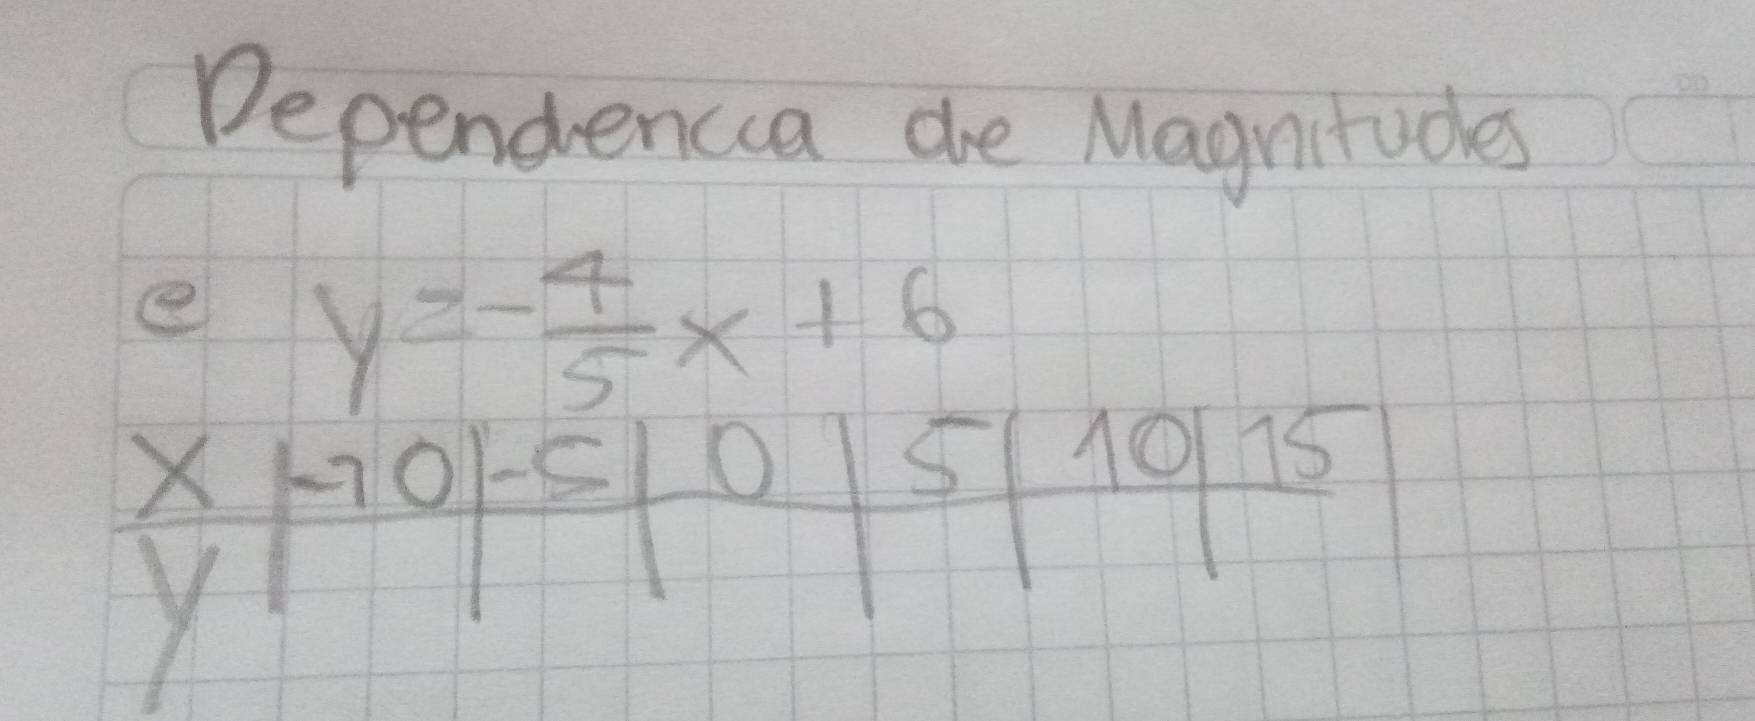 Dependencia de Magnitudes
e y = -4/5 x + 6
x | -10 | -5 | 0 | 5 | 10 | 15 |
y